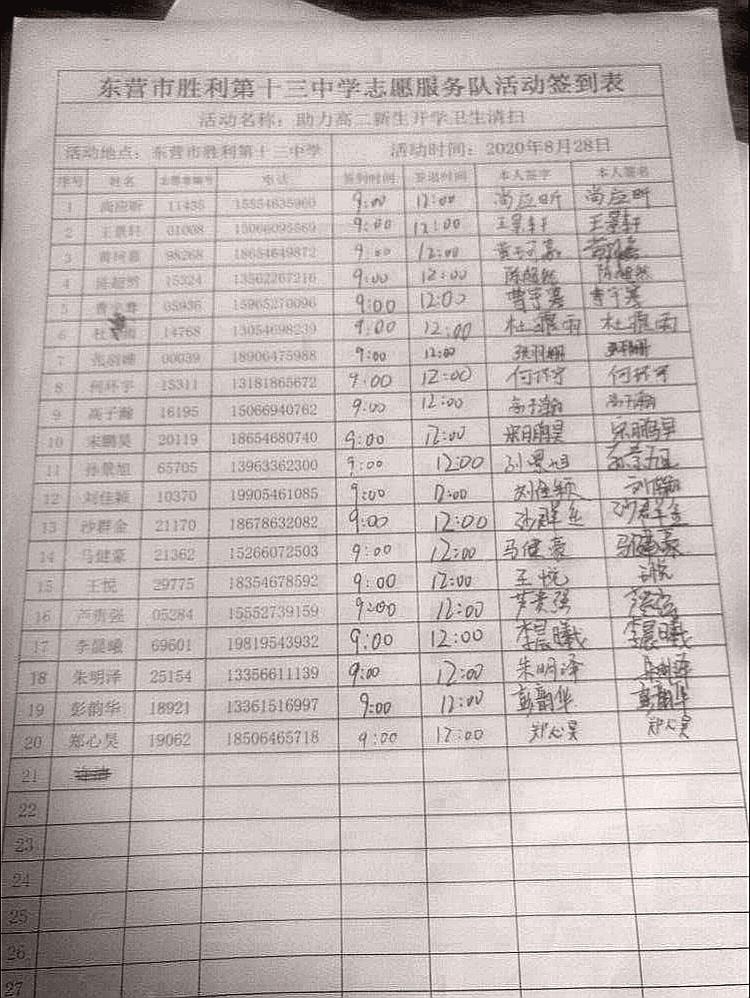 东营市胜利第十三中学志愿服务队活动签到表
活动名称：助力高二新生开学卫生清扫
活动地点：东营市胜利第十三中学 活动时间：2020年8月28日
序号 姓名 志愿者编号 电话 签到时间 签退时间 本人签字 本人签名
1 尚应昕 11435 15554635960 9:00 12:00 尚应昕 尚应昕
2 王景轩 01008 15066095569 9:00 12:00 王景轩 王景轩
3 98268 18654649872 9:00 12:00
4 陈超然 15324 13562267216 9:00 12:00 陈超然 陈超然
5 05936 15965270096 9:00 12:00
6 14768 13054698239 9:00 12:00 杜霏雨 杜霏雨
7 00039 18906475988 9:00 12:00
8 何环宇 15311 13181865672 9:00 12:00 何环宇 何环宇
9 高子瀚 16195 15066940762 9:00 12:00 高子瀚 高子瀚
10 宋鹏昊 20119 18654680740 9:00 12:00 宋鹏昊 宋鹏昊
11 孙景旭 65705 13963362300 9:00 12:00 孙景旭 孙景旭
12 刘佳颖 10370 19905461085 9:00 12:00 刘佳颖 刘佳颖
13 沙群金 21170 18678632082 9:00 12:00 沙群金 沙群金
14 马健豪 21362 15266072503 9:00 12:00 马健豪 马健豪
15 王悦 29775 18354678592 9:00 12:00 王悦 王悦
16 芦贵强 05284 15552739159 9:00 12:00 芦贵强
17 李晨曦 69601 19819543932 9:00 12:00 李晨曦 李晨曦
18 朱明泽 25154 13356611139 9:00 12:00 朱明泽 朱明泽
19 彭韵华 18921 13361516997 9:00 12:00 彭韵华 彭韵华
20 郑心昊 19062 18506465718 9:00 12:00 郑心昊 郑心昊
21
22
23
24
25
26
27